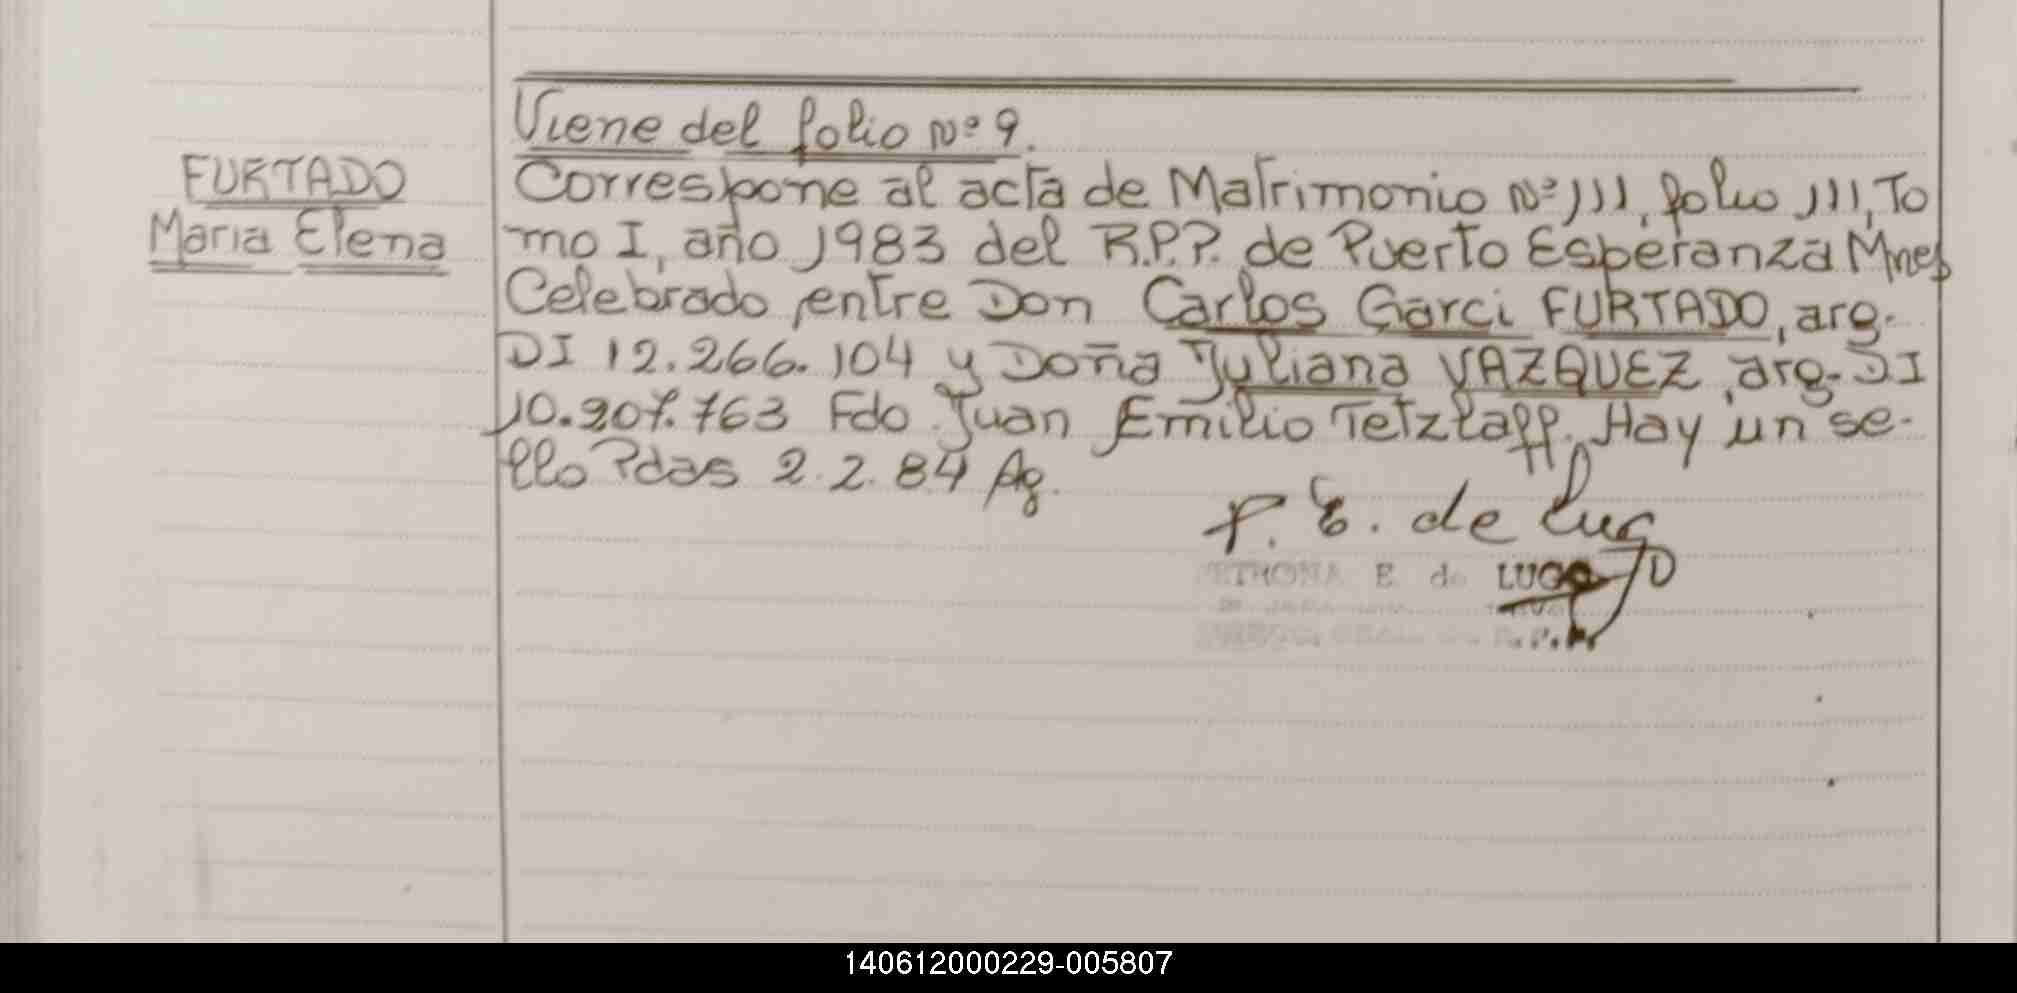 Viene del folio Nº 9.
FURTADO
Maria Elena
Correspone al acta de Matrimonio Nº 111, folio 111, To
mo I, año 1983 del R.P.P. de Puerto Esperanza Mnes
Celebrado, entre Don Carlos Garci FURTADO, arg.
DI 12.266.104 y Doña Juliana VAZQUEZ, arg. DI
10.207.763 Fdo. Juan Emilio Tetzlaff. Hay un se-
llo Pdas 2.2.84 Ag.
P. E. de Lugo
PETRONA E de LUGO
R.P.P.
140612000229-005807